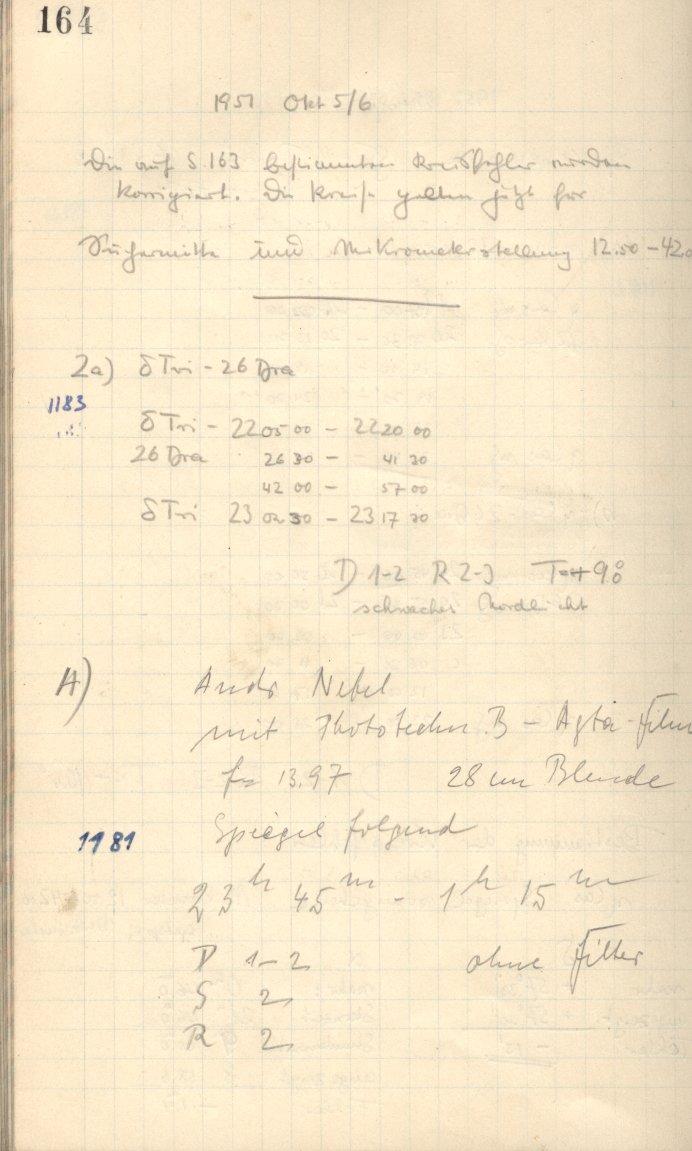 164
1951 Okt 5/6
Die auf S. 163 bestimmten Kreisfehler werden
korrigiert. Die Kreise gelten jetzt für
Suchermitte und Mikrometerstellung 12.50 – 42.0
2a) δ Tri - 26 Dra
1183
δ Tri - 22 05 00 – 22 20 00
26 Dra 26 30 – 41 30
42 00 – 57 00
δ Tri 23 02 30 – 23 17 30
D 1-2 R 2-3 T=+9°
schwaches Nordlicht
A) Andr Nebel
mit Phototechn. B – Agfa-Film
f= 13.97 28 cm Blende
1181 Spiegel folgend
23h 45m - 1h 15m
D 1-2 ohne Filter
S 2
R 2